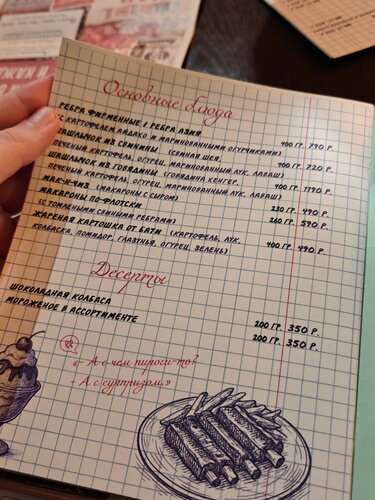 Основные блюда
РЕБРА ФИРМЕННЫЕ / РЕБРА АЗИЯ 400 ГР. 790 Р.
(С КАРТОФЕЛЕМ АЙДАХО И МАРИНОВАННЫМИ ОГУРЧИКАМИ)
ШАШЛЫЧОК ИЗ СВИНИНЫ (СВИНАЯ ШЕЯ, 400 ГР. 720 Р.
ПЕЧЕНЫЙ КАРТОФЕЛЬ, ОГУРЕЦ, МАРИНОВАННЫЙ ЛУК, ЛАВАШ)
ШАШЛЫЧОК ИЗ ГОВЯДИНЫ (ГОВЯДИНА КЕНГЕР, 400 ГР. 1190 Р.
ПЕЧЕНЫЙ КАРТОФЕЛЬ, ОГУРЕЦ, МАРИНОВАННЫЙ ЛУК, ЛАВАШ)
МАК-Н-ЧИЗ (МАКАРОНЫ С СЫРОМ) 220 ГР. 490 Р.
МАКАРОНЫ ПО-ФЛОТСКИ 260 ГР. 590 Р.
(С ТОМЛЕНЫМИ СВИНЫМИ РЕБРАМИ)
ЖАРЕНАЯ КАРТОШКА ОТ БАТИ (КАРТОФЕЛЬ, ЛУК, 400 ГР. 490 Р.
КОЛБАСКА, ПОМИДОР, ГЛАЗУНЬЯ, ОГУРЕЦ, ЗЕЛЕНЬ)
Десерты
ШОКОЛАДНАЯ КОЛБАСА 200 ГР. 350 Р.
МОРОЖЕНОЕ В АССОРТИМЕНТЕ 200 ГР. 350 Р.
«- А с чем пироги-то?
- А с сурпризом.»